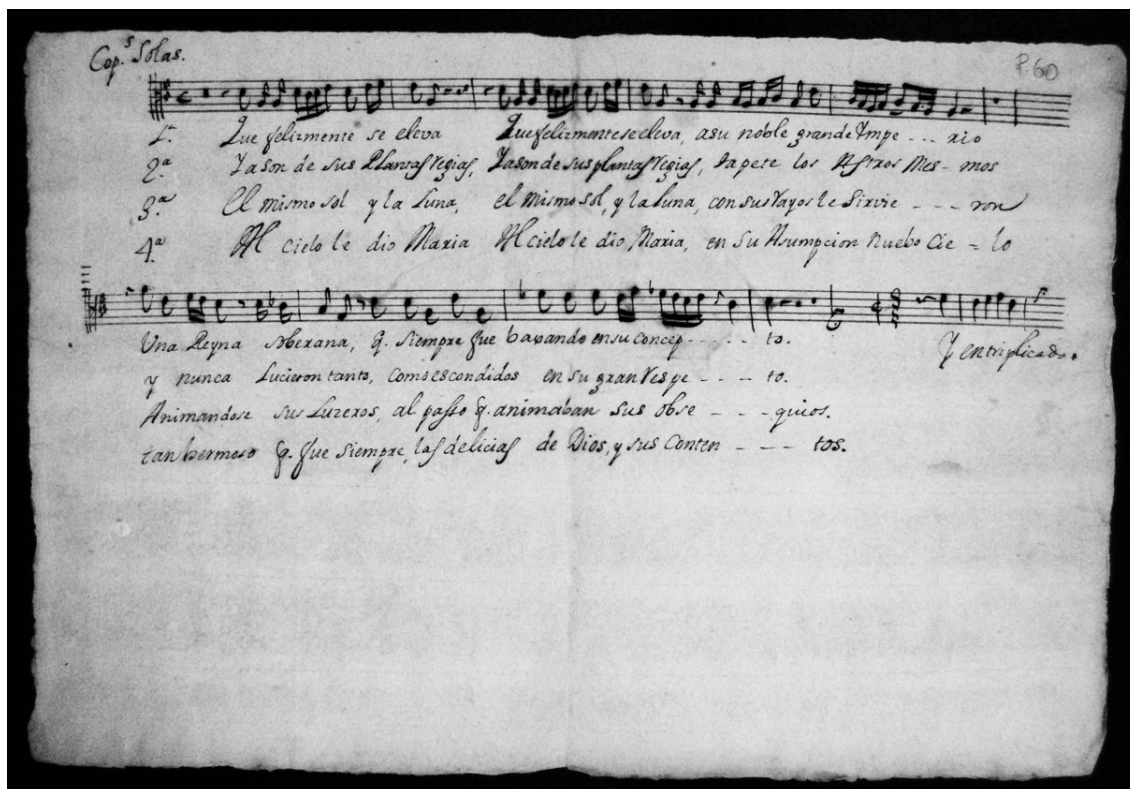 Cop.s Solas.
P. 60
1.a Que felizmente se eleva Que felizmente se eleva, a su noble grande Ympe - - - rio
2.a Ya son de sus Plantas regias, Ya son de sus plantas regias, tapete los Astros Mes - mos
3.a El mismo sol y la Luna, el mismo sol, y la Luna, con sus rayos le sirvie - - - ron
4.a Al cielo le dio Maria Al cielo le dio, Maria, en su Asumpcion nuebo Cie = lo
Una Reyna soberana, q. siempre fue baxando en su concep - - - - to. Y en triplicado.
y nunca Lucieron tanto, como escondidos en su gran respe - - - - to.
Animandose sus Luzeros, al passo q. animaban sus obse - - - quios.
tan hermoso q. fue siempre, las delicias de Dios, y sus Conten - - - - tos.